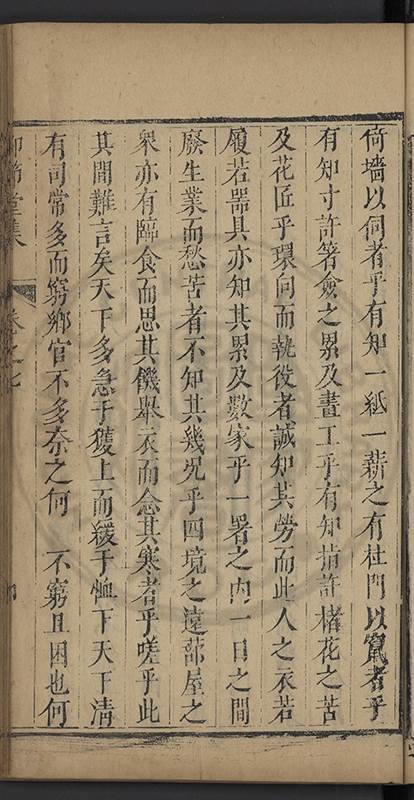 倚墻以伺者乎有知一紙一薪之有杜門以竄者乎
有知寸許箸僉之累及畫工乎有知指許楮花之苦
及花匠乎環向而執役者誠知其勞而此人之衣若
履若器具亦知其累及數家乎一署之內一日之間
廢生業而愁苦者不知其幾况乎四境之遠蔀屋之
衆亦有臨食而思其饑舉衣而念其寒者乎嗟乎此
其間難言矣天下多急于獲上而緩于恤下天下清
有司常多而窮鄉官不多奈之何 不窮且困也何
節堂集 卷之七